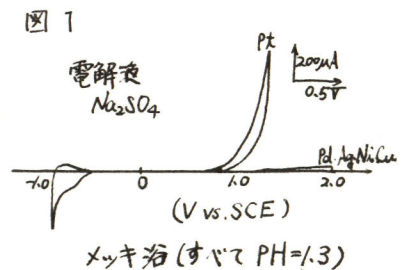 図1
電解液
Na₂SO₄
Pt
200μA
0.5V
Pd.Ag.Ni.Cu
-1.0 0 1.0 2.0
(V vs. SCE)
メッキ浴(すべて PH=1.3)